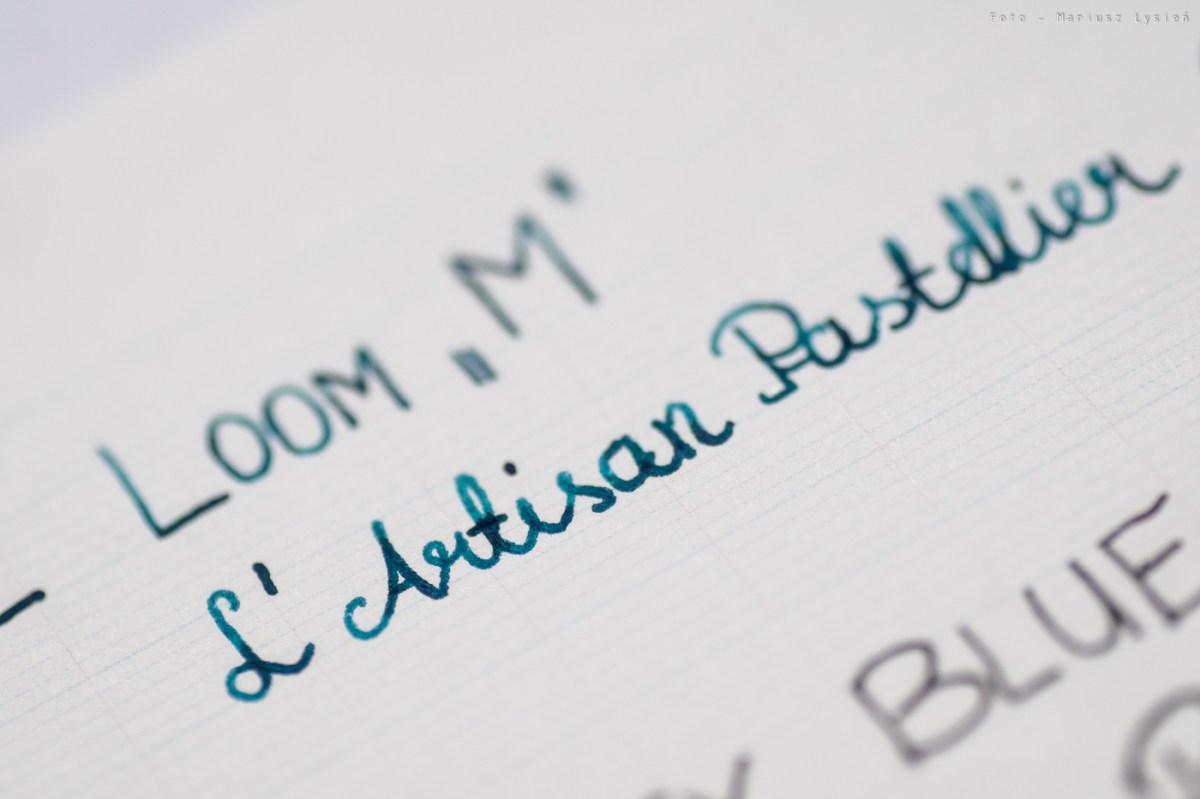 Foto - Mariusz Łysień
LOOM „M"
L'Artisan Pastellier
BLUE